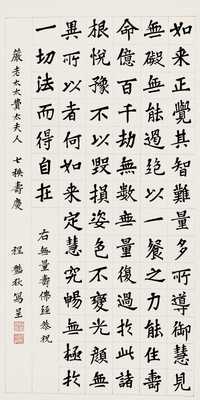 如来正覺其智難量多所導御慧見
無礙無能遏絕以一餐之力能住壽
命億百千劫無數無量復過於此諸
根悅豫不以毀損姿色不變光顏無
異所以者何如来定慧究暢無極於
一切法而得自在
右無量壽佛經恭祝
嚴老太太費太夫人 七秩壽慶
程艷秋寫呈